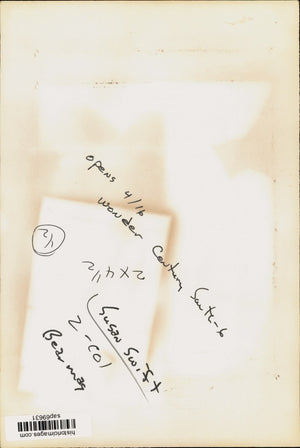 opens 4/16
Wonder Century South-6
1/2
2 x 4 1/2
Susan Swift
2-col
historicimages.com
sap69631